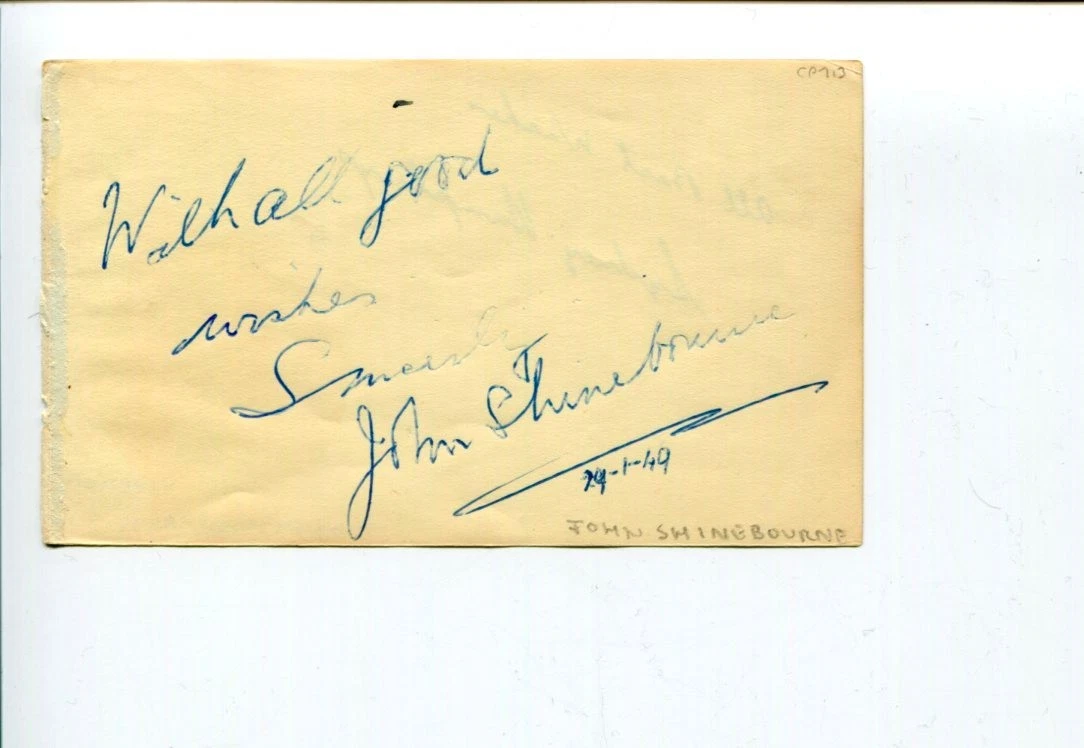 With all good
wishes
Sincerely
John Shinebourne
24-1-49
JOHN SHINEBOURNE